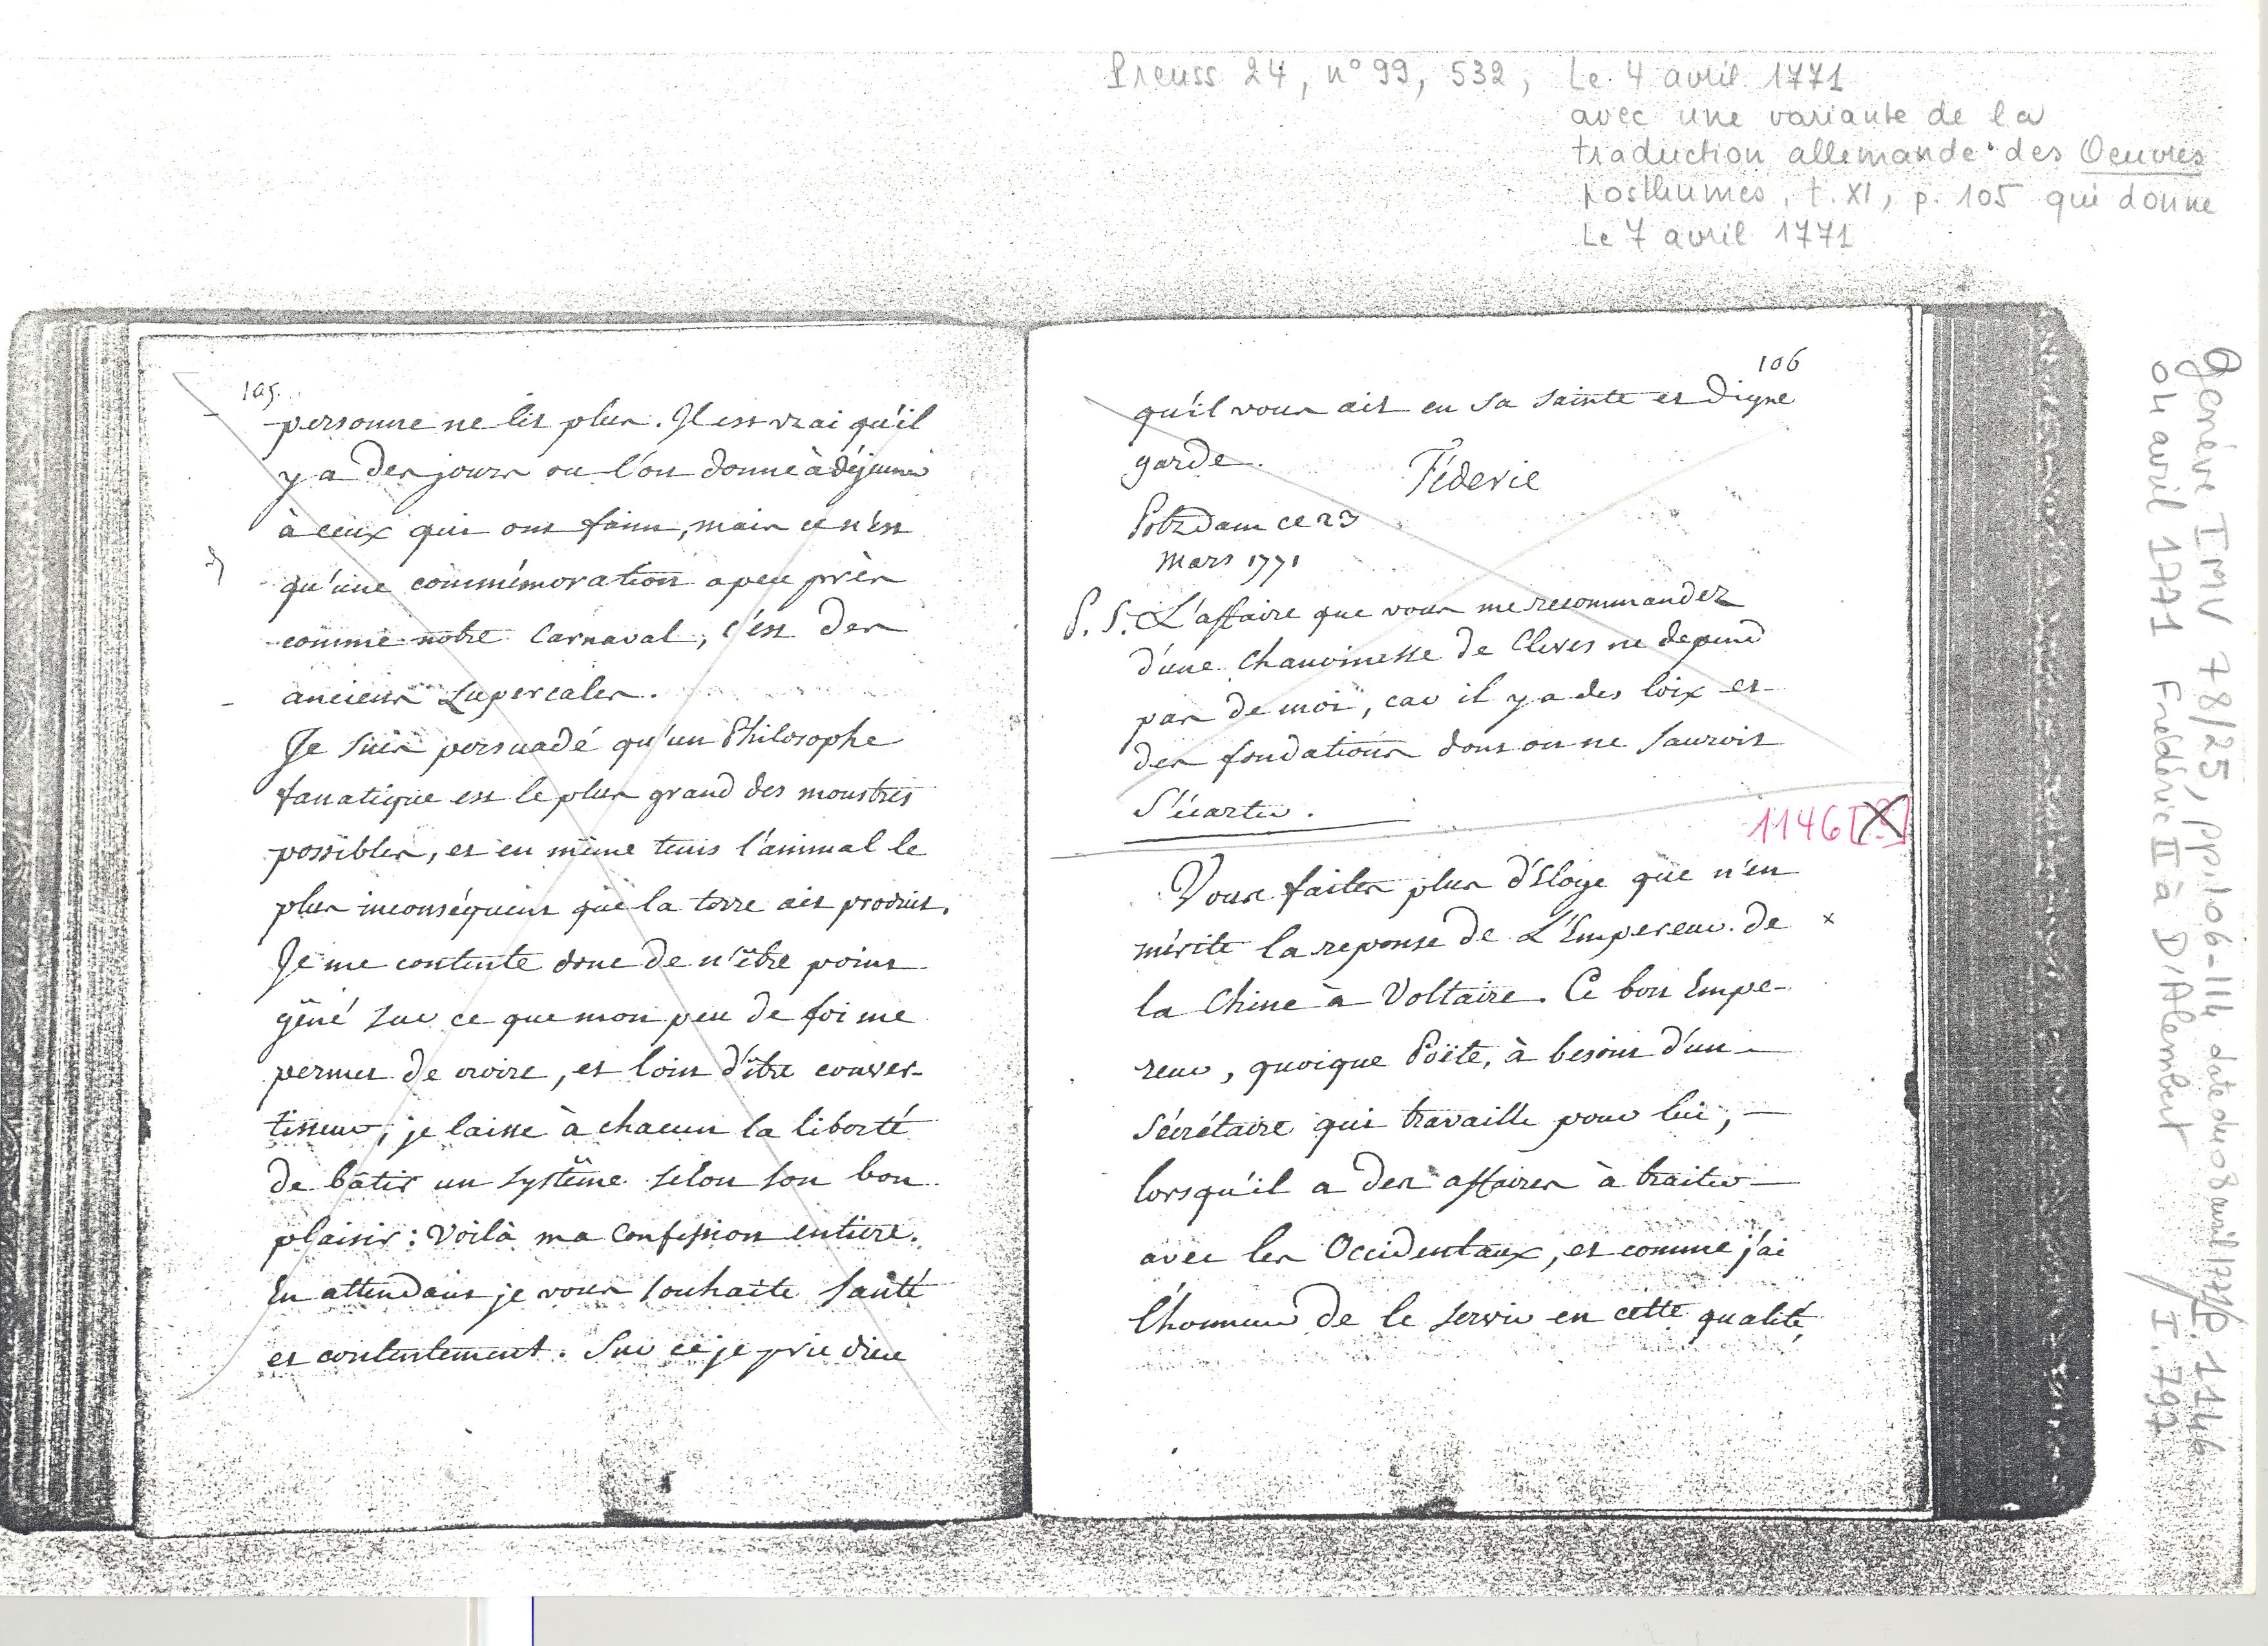 Preuss 24, n° 99, 532, Le 4 avril 1771
avec une variante de la
traduction allemande des Oeuvres
posthumes, t. XI, p. 105 qui donne
Le 7 avril 1771
105.
personne ne lit plus. Il est vrai qu'il
y a des jours ou l'on donne à déjeuner
à ceux qui ont faim, mais ce n'est
qu'une commémoration a peu près
comme notre Carnaval, c'est des
anciens Lupercales.
Je suis persuadé qu'un Philosophe
fanatique est le plus grand des monstres
possibles, et en même tems l'animal le
plus inconséquent que la terre ait produit.
Je me contente donc de n'être point
gêné sur ce que mon peu de foi me
permet de croire, et loin d'être conver-
tisseur, je laisse à chacun la liberté
de bâtir un système selon son bon
plaisir: Voilà ma Confession entiere.
En attendant je vous souhaite santé
et contentement. Sur ce je prie dieu
106
qu'il vous ait en sa sainte et digne
garde.
Féderic
Potzdam ce 23
mars 1771
P. S. L'affaire que vous me recommandez
d'une Chanoinesse de Cleves ne depend
pas de moi, car il y a des loix et
des fondations dont on ne sauroit
s'écarter.
1146 [?]
Vous faites plus d'Eloge que n'en
mérite la reponse de L'Empereur de x
la Chine à Voltaire. Ce bon Empe-
reur, quoique Poëte, à besoin d'un
Sécrétaire qui travaille pour lui,
lorsqu'il a des affaires à traiter
avec les Occidentaux, et comme j'ai
l'honneur de le servir en cette qualité,
Genève IMV 78/25, pp. 106-114 date du 08 avril 1771/P. 1146
04 avril 1771 Frédéric II à D'Alembert / I. 797